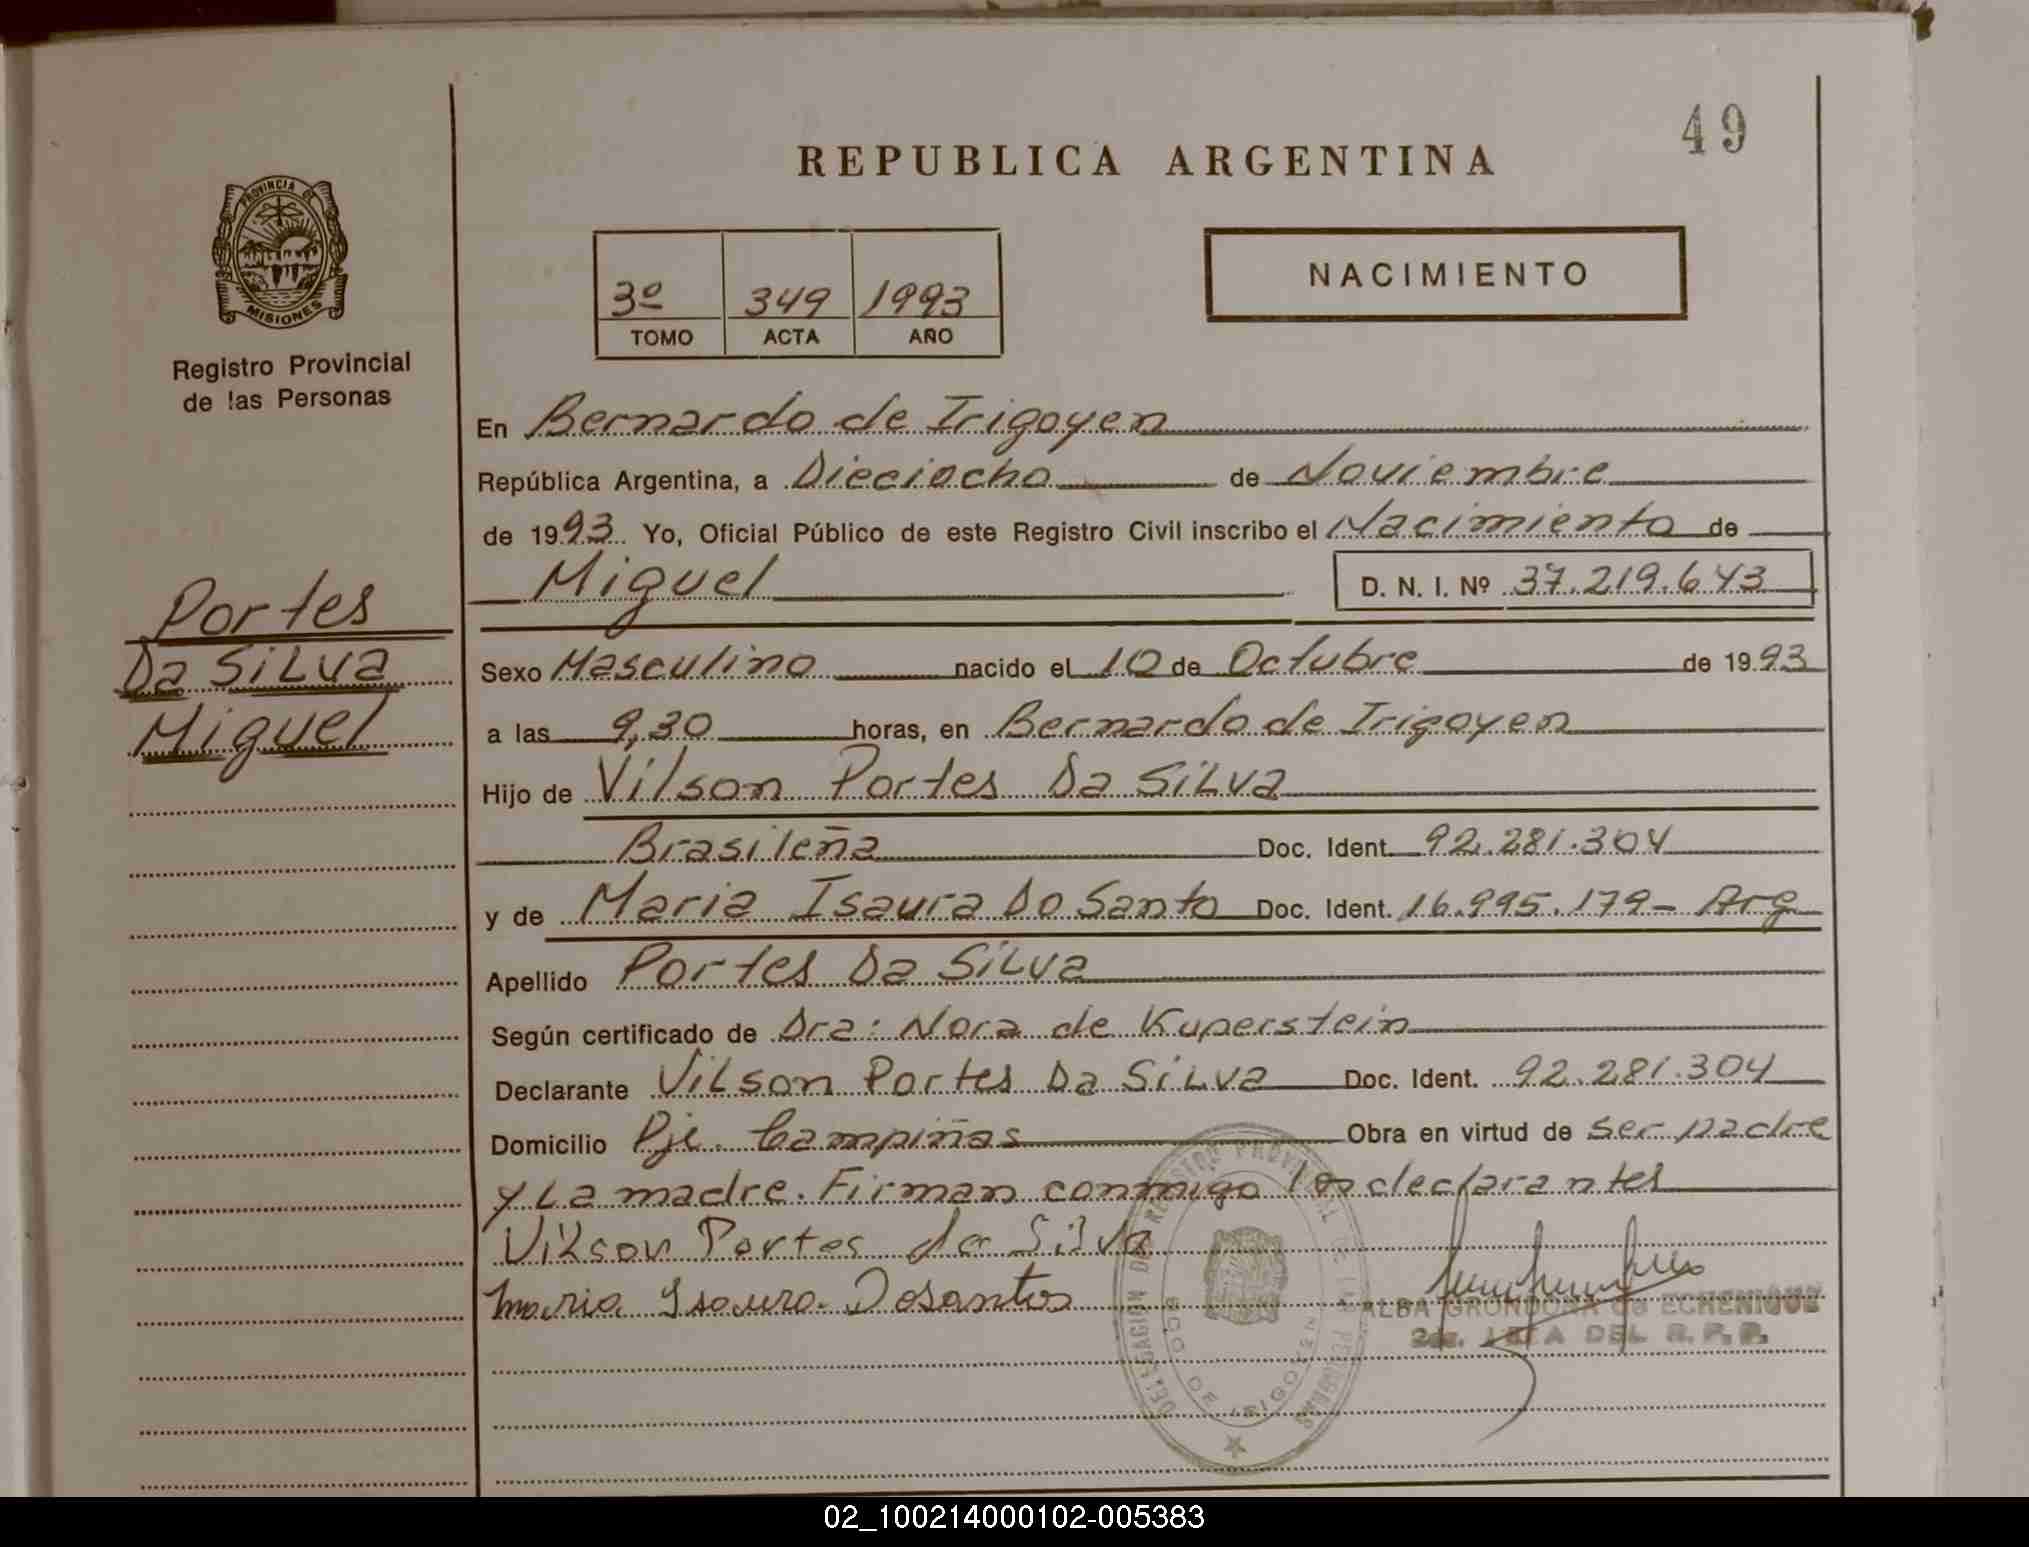 49
REPUBLICA ARGENTINA
PROVINCIA DE
MISIONES
3º 349 1993
TOMO ACTA AÑO
NACIMIENTO
Registro Provincial
de las Personas
Portes
Da Silva
Miguel
En Bernardo de Irigoyen
República Argentina, a Dieciocho de Noviembre
de 1993. Yo, Oficial Público de este Registro Civil inscribo el Nacimiento de
Miguel D. N. I. Nº 37.219.643
Sexo Masculino nacido el 10 de Octubre de 1993
a las 9,30 horas, en Bernardo de Irigoyen
Hijo de Vilson Portes Da Silva
Brasileña Doc. Ident. 92.281.304
y de Maria Isaura Do Santo Doc. Ident. 16.995.179- Arg
Apellido Portes Da Silva
Según certificado de Dra: Nora de Kuperstein
Declarante Vilson Portes Da Silva Doc. Ident. 92.281.304
Domicilio Pje. Campiñas Obra en virtud de ser padre
y La madre. Firman conmigo los declarantes
Vilson Portes da Silva
Maria Isaura Dosantos
DELEGACION DEL REGISTRO PROVINCIAL DE LAS PERSONAS
BDO DE IRIGOYEN
ALBA GRONDONA de ECHENIQUE
DEL R. P. P.
02_100214000102-005383